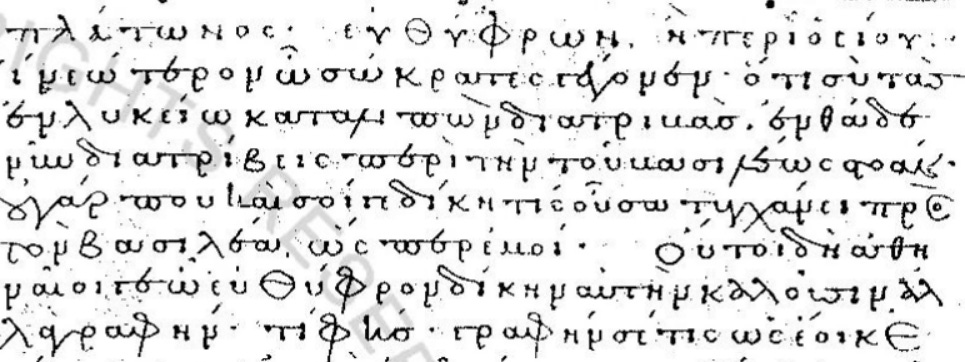 πλάτωνος· εὐθύφρων, ἢ περὶ ὁσίου·
τί νεώτερον ὦ σώκρατες γέγονεν· ὅτι σὺ τὰς
ἐν λυκείω καταλιπὼν διατριβάς, ἐνθάδε
νῦν διατρίβεις περὶ τὴν τοῦ βασιλέως στοάν·
οὐ γάρ που καὶ σοί γε δίκη τίς οὖσα τυγχάνει πρὸς
τὸν βασιλέα, ὡς περ ἐμοί· Οὔτοι δὴ ἀθη
ναῖοί γε ὦ εὐθύφρον δίκην αὐτὴν καλοῦσιν ἀλ
λὰ γραφήν· τί φής· γραφήν σέ τις ὡς ἔοικε